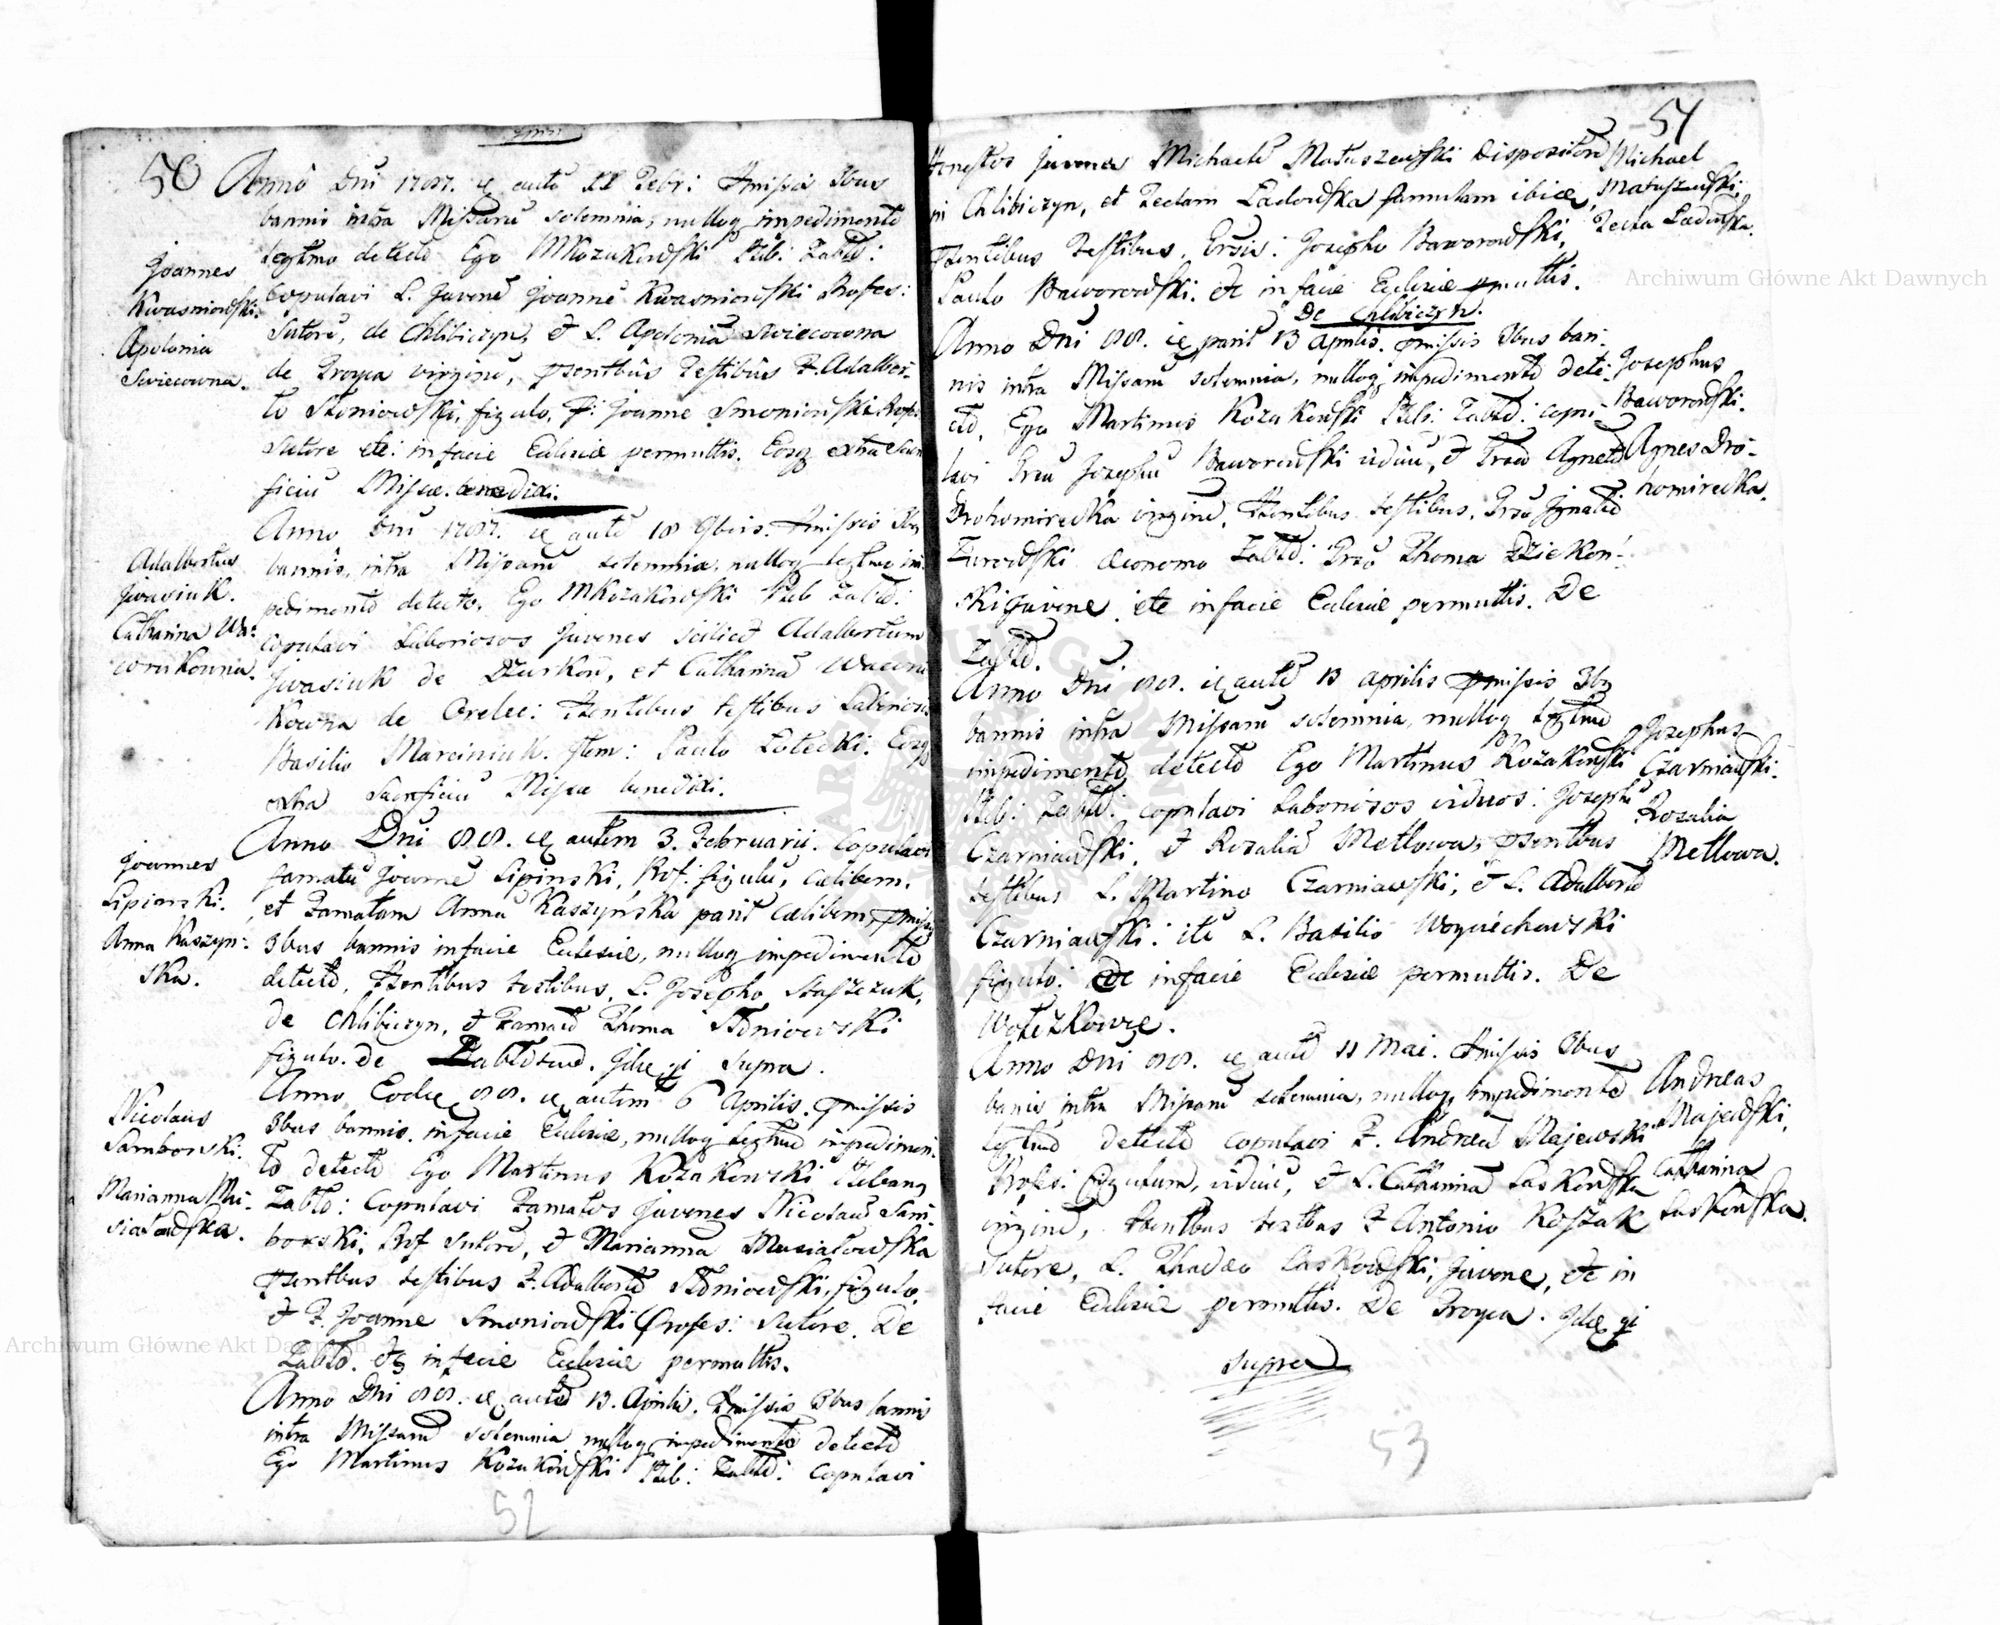 50
Anno Dni 1787. autē 11 Febr: Pmissis 3bus
bannis intra Missarū solemnia, nulloq impedimento
legtmo detecto Ego MKozakowski Pleb: Zabłō:
Copulavi L. Juvenē Joannē Kwasniowski Profes:
Sutorē, de Chlibiczyn, et L. Apoloniā Swiecowna
de Troyca virginē, psentbus Testibus F. Adalber-
to Słoniowski, figulo, F: Joanne Smoniowski Profes:
Sutore etc: in facie Eclesie permultis. Eosq extra Sacri
ficiū Missæ. benedixi.
Joannes
Kwasniowski.
Apolonia
Swiecowna.
Anno Dni 1787. autē 18 9bris. Pmissis 3bq
bannis, intra Missarū solemnia, nulloq legtmo im
pedimento detecto, Ego MKozakowski Pleb Zabłō:
copulavi Laboriosos Juvenes scilicet Adalbertum
Jwasiuk de Dżurkow, et Catharinā Wawru
Kowna de Orelec: Psentibus testibus Laborioso
Basilio Marciniuk. Jtem: Paulo Łotecki. Eosq
extra Sacrificiū Missæ benedixi.
Adalbertus
Jwasiuk.
Catharina Wa-
wrukowna.
Anno Dni 88. autem 3. Februarii. Copulavi
famatū Joannē Lipinski, Prof: figulū, cælibem,
et Famatam Annā Kaszyńska parit cælibem, pmissis
3bus bannis in facie Eclesiæ, nulloq impedimento
detecto, Psentibus testibus, L. Josepho Staszczuk,
de Chlibiczyn, et Famato Thoma Słoniowski
figulo. de Supra.
Joannes
Lipinski.
Anna Kaszyn-
ska.
Anno Eodē 88. autem 6 Aprilis. pmissis
3bus bannis, in facie Eclesiæ, nulloq legtmo impedimen-
to detecto Ego Martinus Kozakowski Plebanq
Zabło: Copulavi Famatos Juvenes Nicolaū Sam-
borski, Prof Sutorē, et Marianna Musiałowska
psentbus testibus F. Adalberto Słoniowski, figulo,
et F. Joanne Smoniowski Profes: Sutore. De
Zabło. etc in facie Eclesiæ permultis.
Nicolaus
Samborski.
Marianna Mu-
siałowska.
Anno Dni 88. autē 13. Aprilis. Pmissis 3bus bannis
intra Missarū solemnia nulloq impedimento detecto
Ego Martinus Kozakowski Pleb: Zabłō: copulavi
52
51
Honestos Juvenes Michaelē Matuszewski Dispositorē
in Chlibiczyn, et Teclam Ładowska famulam ibidē,
Psentibus Testibus, Josepho Baworowski,
Paulo Baworowski. etc in facie Eclesiæ pmultis.
De Chlibiczyn.
Michael
Matuszewski.
Tecla Ładowska.
Anno Dni 88. parit 13 Aprilis. pmissis 3bus ban-
nis intra Missarū solemnia, nulloq impedimento dete-
cto, Ego Martinus Kozakowski Pleb: Zabłō: copu-
lavi Josephū Baworowski viduū, et Agnetē
Drohomirecka virginē, Psentibus testibus, Ignatio
Żurowski Œconomo Zabłō: Thoma Dziekoń-
ski Juvene, etc in facie Eclesiæ permultis. De
Zabło.
Josephus
Baworowski.
Agnes Dro-
homirecka.
Anno Dni 88. autē 13 Aprilis pmissis 3bq
bannis intra Missarū solemnia, nulloq legtmo
impedimento detecto Ego Martinus Kozakowski
Pleb: Zabłō: copulavi Laboriosos viduos: Josephū
Czarniawski, et Rozaliā Metlowa, psentbus
testibus L. Martino Czarniawski, et L. Adalberto
Czarniawski: ite L. Basilio Woyciechowski
figulo: etc in facie Eclesiæ permultis. De
Wołczkowce.
Josephus
Czarniawski.
Rozalia
Metlowa.
Anno Dni 88. autē 11 Mai. Pmissis 3bus
banis intra Missarū solemnia, nulloq impedimento
legtmo detecto copulavi F. Andreā Majewski
Profes: figulum, viduū, et L. Catharinā Laskowska
virginē, Psentbus testbus F Antonio Koszak
Sutore, L. Thadæo Laskowski, Juvene, etc in
facie Eclesiæ permultis. De Troyca. Jdē qi
supra
Andreas
Majewski.
Catharina
Laskowska.
53
Archiwum Główne Akt Dawnych
Archiwum Główne Akt Dawnych